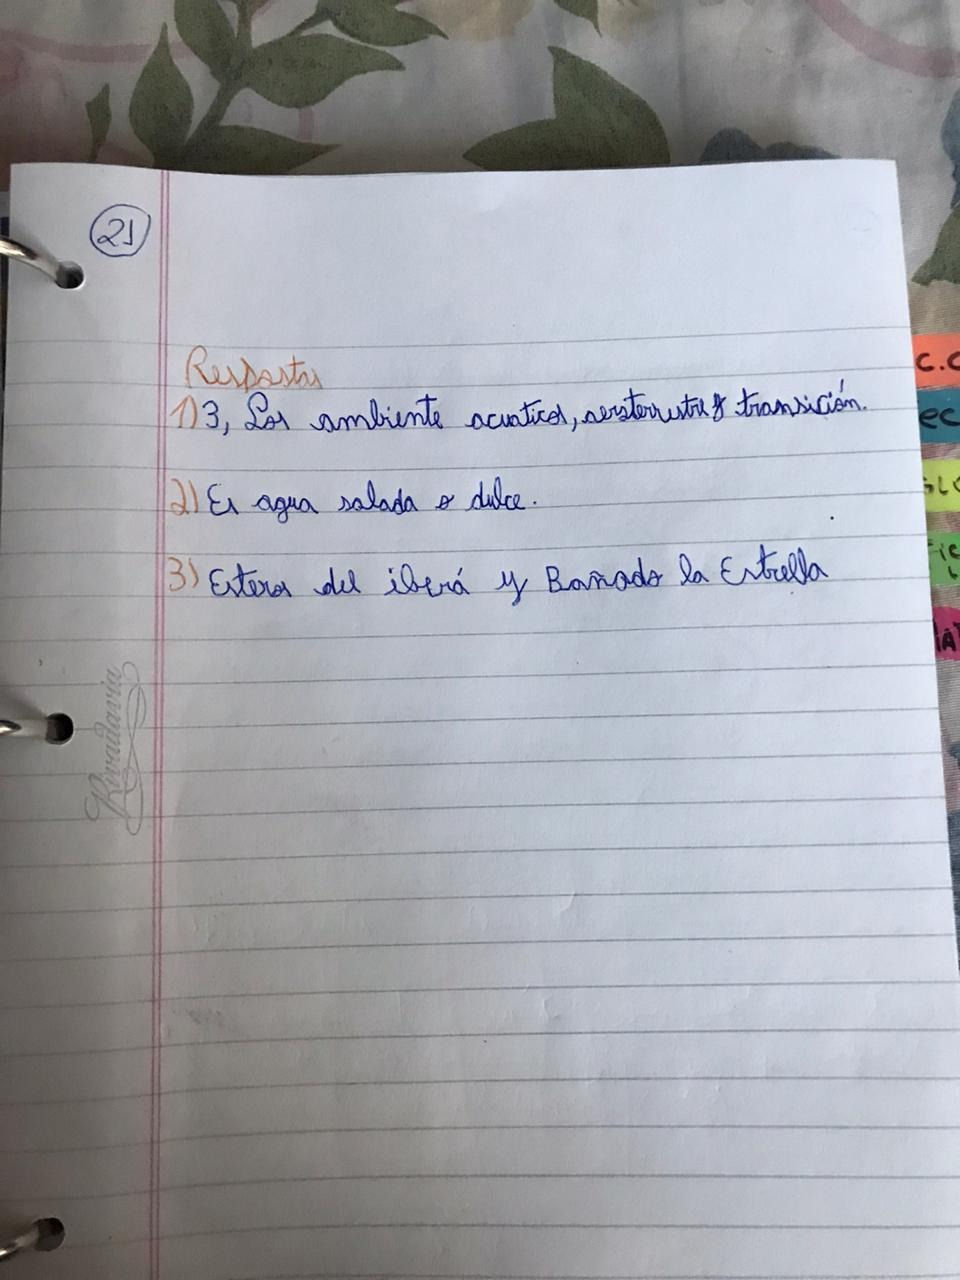 21
Respostas
1) 3, Los ambiente acuaticos, aeroterrestre y transición.
2) Es agua salada o dulce.
3) Esteros del iberá y Bañado la Estrella
Rivadavia
C.C
ec